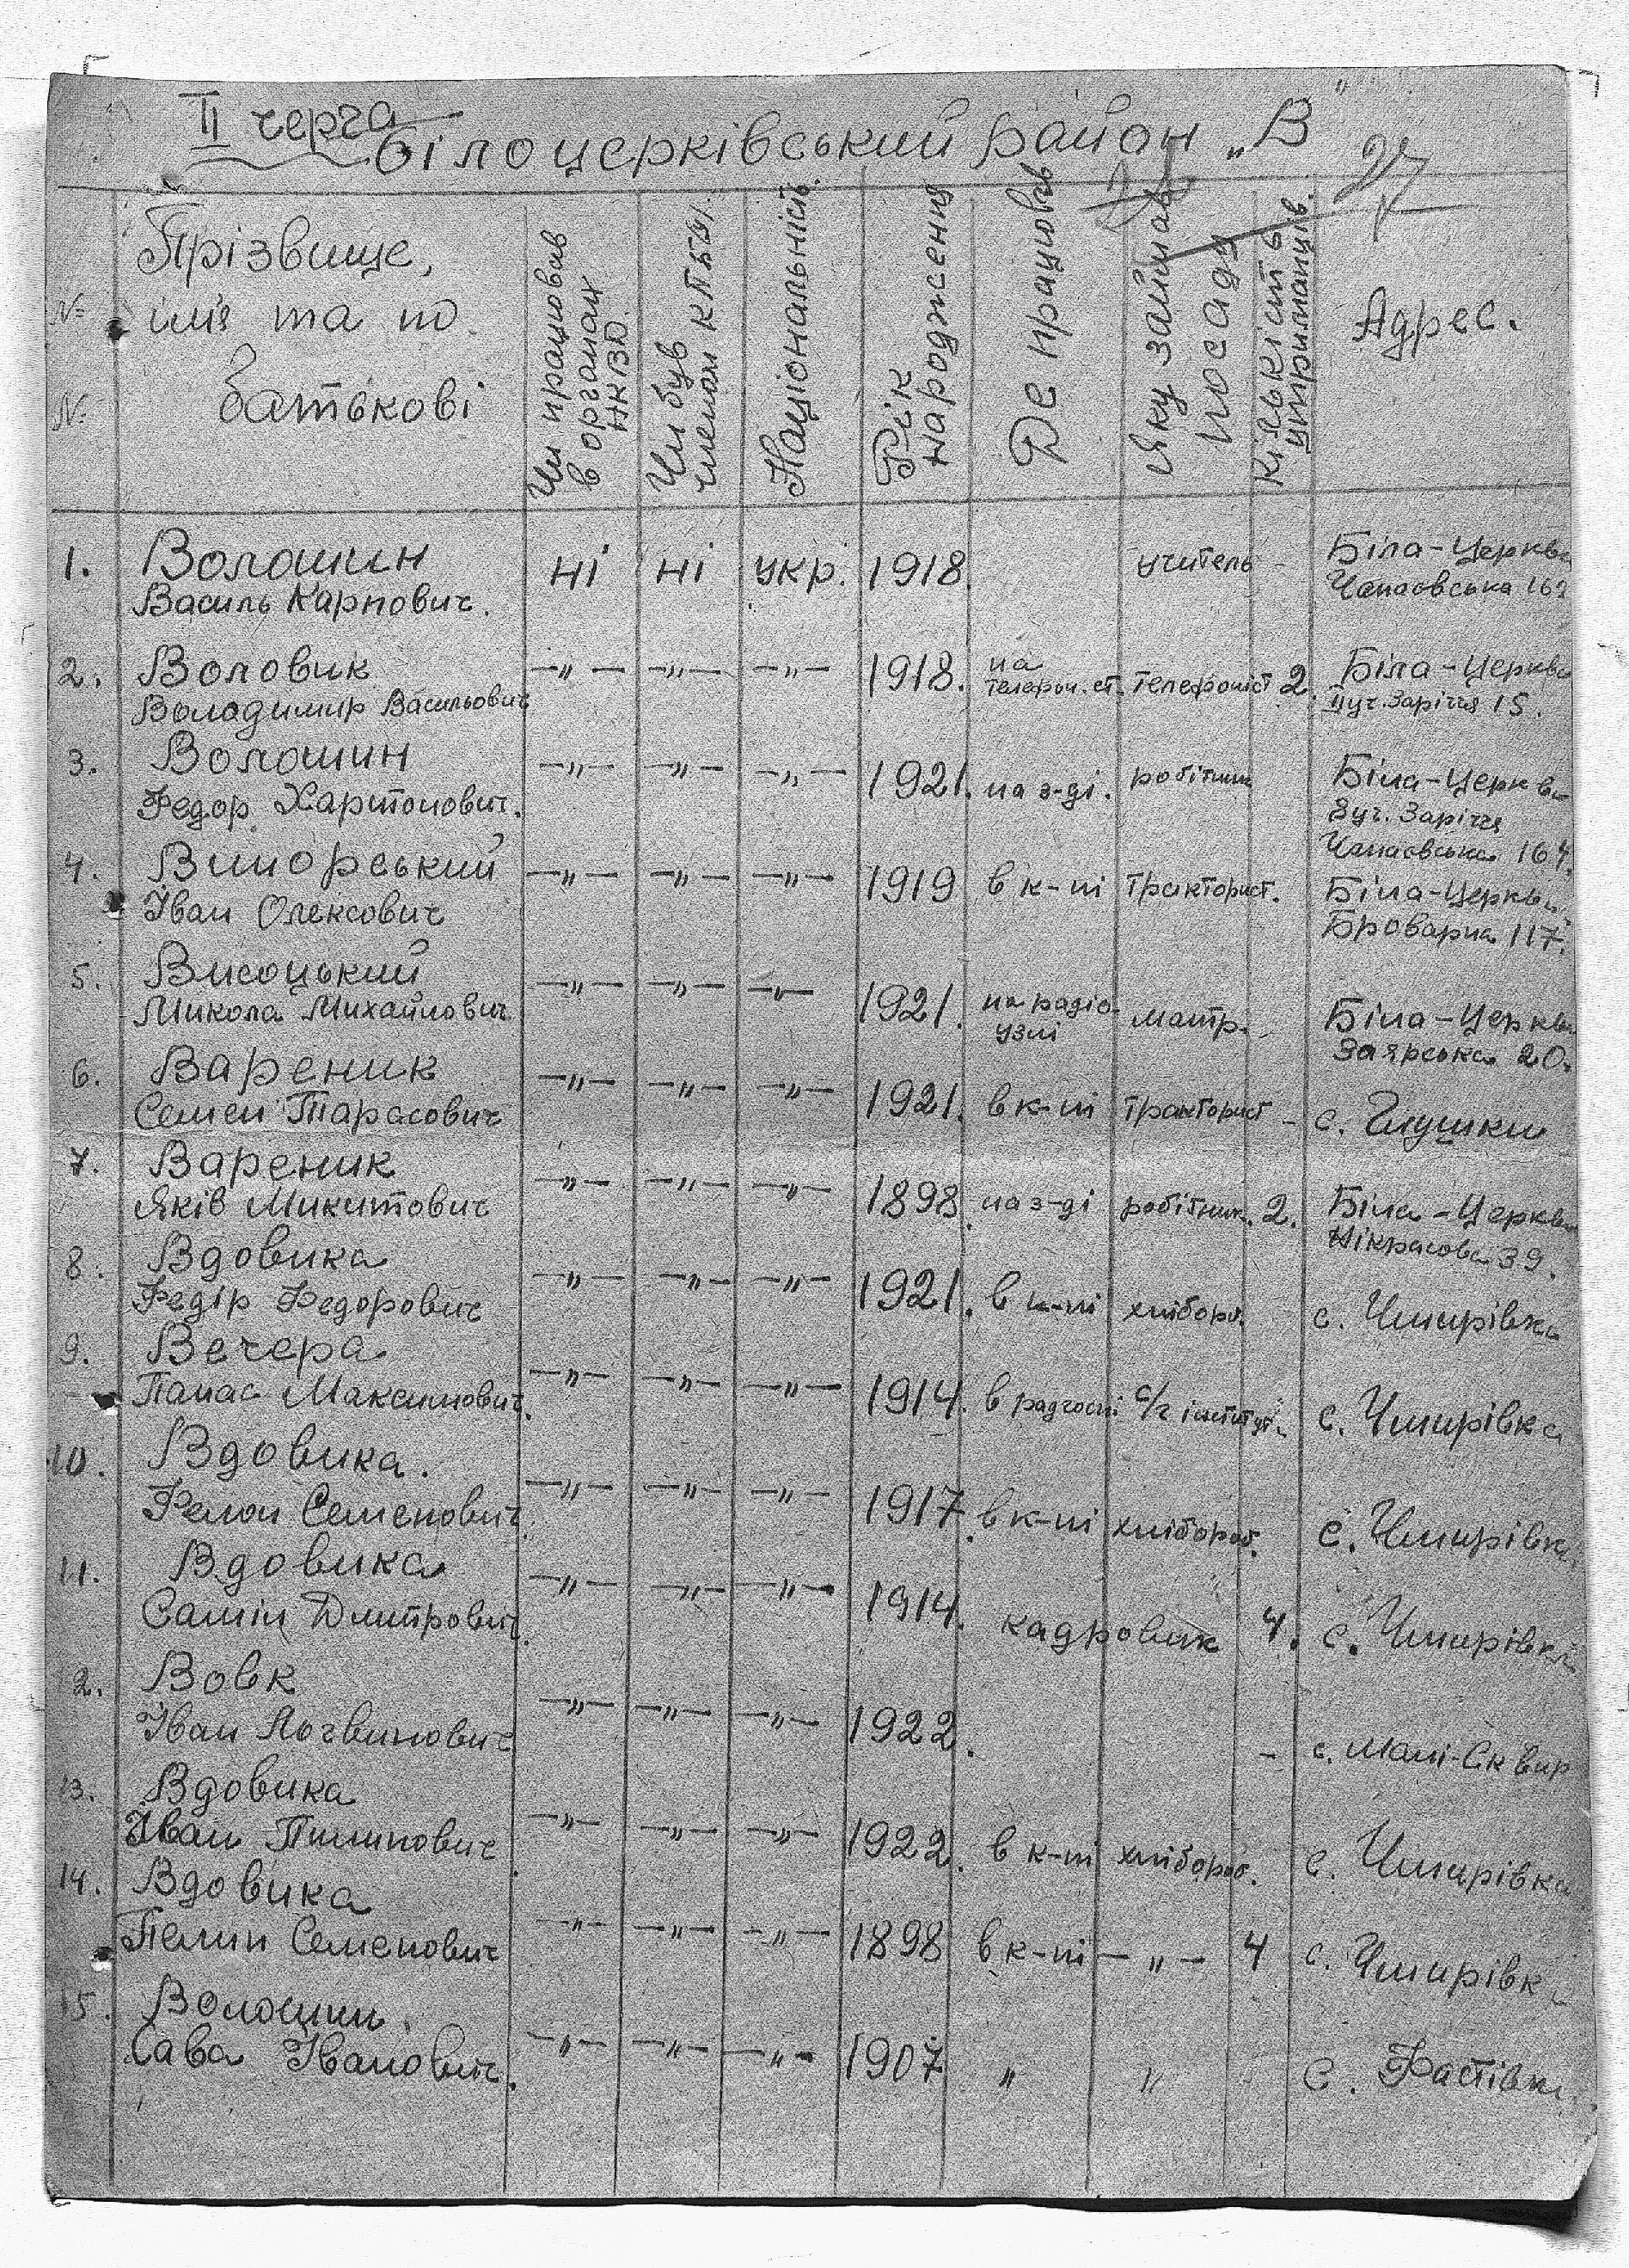 II черга
Білоцерківський район „В"
27
№ №
Прізвище,
ім'я та по
батькові
Чи працював
в органах
НКВД.
Чи був
членом КПб/У/.
Національність.
Рік
народження
Де працював
Яку займав
посаду
Кількість
утриманців.
Адрес.
1. Волошин ні ні укр. 1918. учитель - Біла-Церква
Василь Карпович. Чапаєвська 162
2. Воловик —„— —„— —„— 1918. на телефон. ст. телефоніст 2. Біла-Церква
Володимир Васильович IIуч. Заріччя 15.
3. Волошин —„— —„— —„— 1921. на з-ді. робітник Біла-Церква
Федор Харитонович. 3уч. Заріччя
Чапаєвська 164.
4. Виморський —„— —„— —„— 1919 в к-пі тракторист. Біла-Церква
Іван Олексович Броварна 117.
5. Висоцький —„— —„— —„— 1921. на радіо- монтр. Біла-Церква
Микола Михайлович узлі Заярська 20.
6. Вареник —„— —„— —„— 1921. в к-пі тракторист - с. Глушки
Семен Тарасович
7. Вареник —„— —„— —„— 1898. на з-ді робітник. 2. Біла-Церква
Яків Микитович Нікрасова 39.
8. Вдовика —„— —„— —„— 1921. в к-пі хлібороб. с. Чмирівка
Федір Федорович
9. Вечера —„— —„— —„— 1914. в радгоспі с/г інститут. с. Чмирівка
Панас Максимович.
10. Вдовика. —„— —„— —„— 1917. в к-пі хлібороб. с. Чмирівка
Семенович.
11. Вдовика —„— —„— —„— 1914. кадровик 4. с. Чмирівка
Дмитрович.
2. Вовк —„— —„— —„— 1922. - с. Малі-Сквир
Іван Логвинович.
13. Вдовика —„— —„— —„— 1922. в к-пі хлібороб. с. Чмирівка
Іван Пилипович.
14. Вдовика —„— —„— —„— 1898 в к-пі —„— 4 с. Чмирівк
Пелип Семенович
15. Волошин. —„— —„— —„— 1907 „ „ с. Фастівка
Сава Іванович.